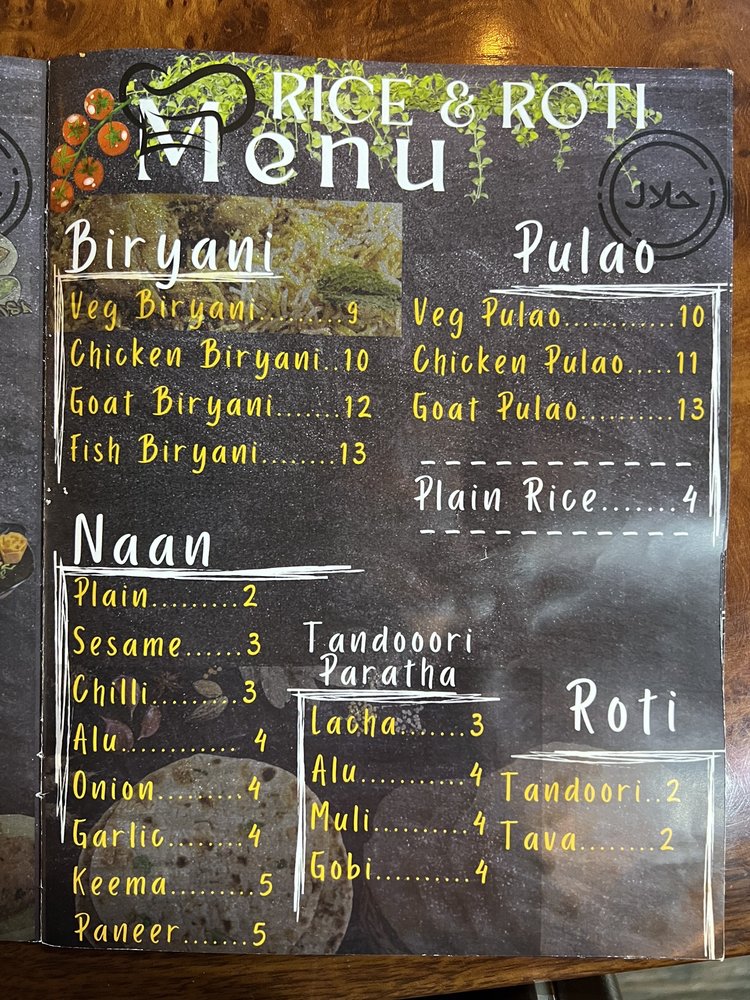 RICE & ROTI
Menu
حلال
Biryani
Veg Biryani.........9
Chicken Biryani..10
Goat Biryani.......12
Fish Biryani........13
Pulao
Veg Pulao............10
Chicken Pulao.....11
Goat Pulao..........13
Plain Rice.......4
Naan
Plain.........2
Sesame......3
Chilli.........3
Alu............ 4
Onion.........4
Garlic.........4
Keema.........5
Paneer.......5
Tandooori
Paratha
Lacha.......3
Alu...........4
Muli..........4
Gobi..........4
Roti
Tandoori..2
Tava........2